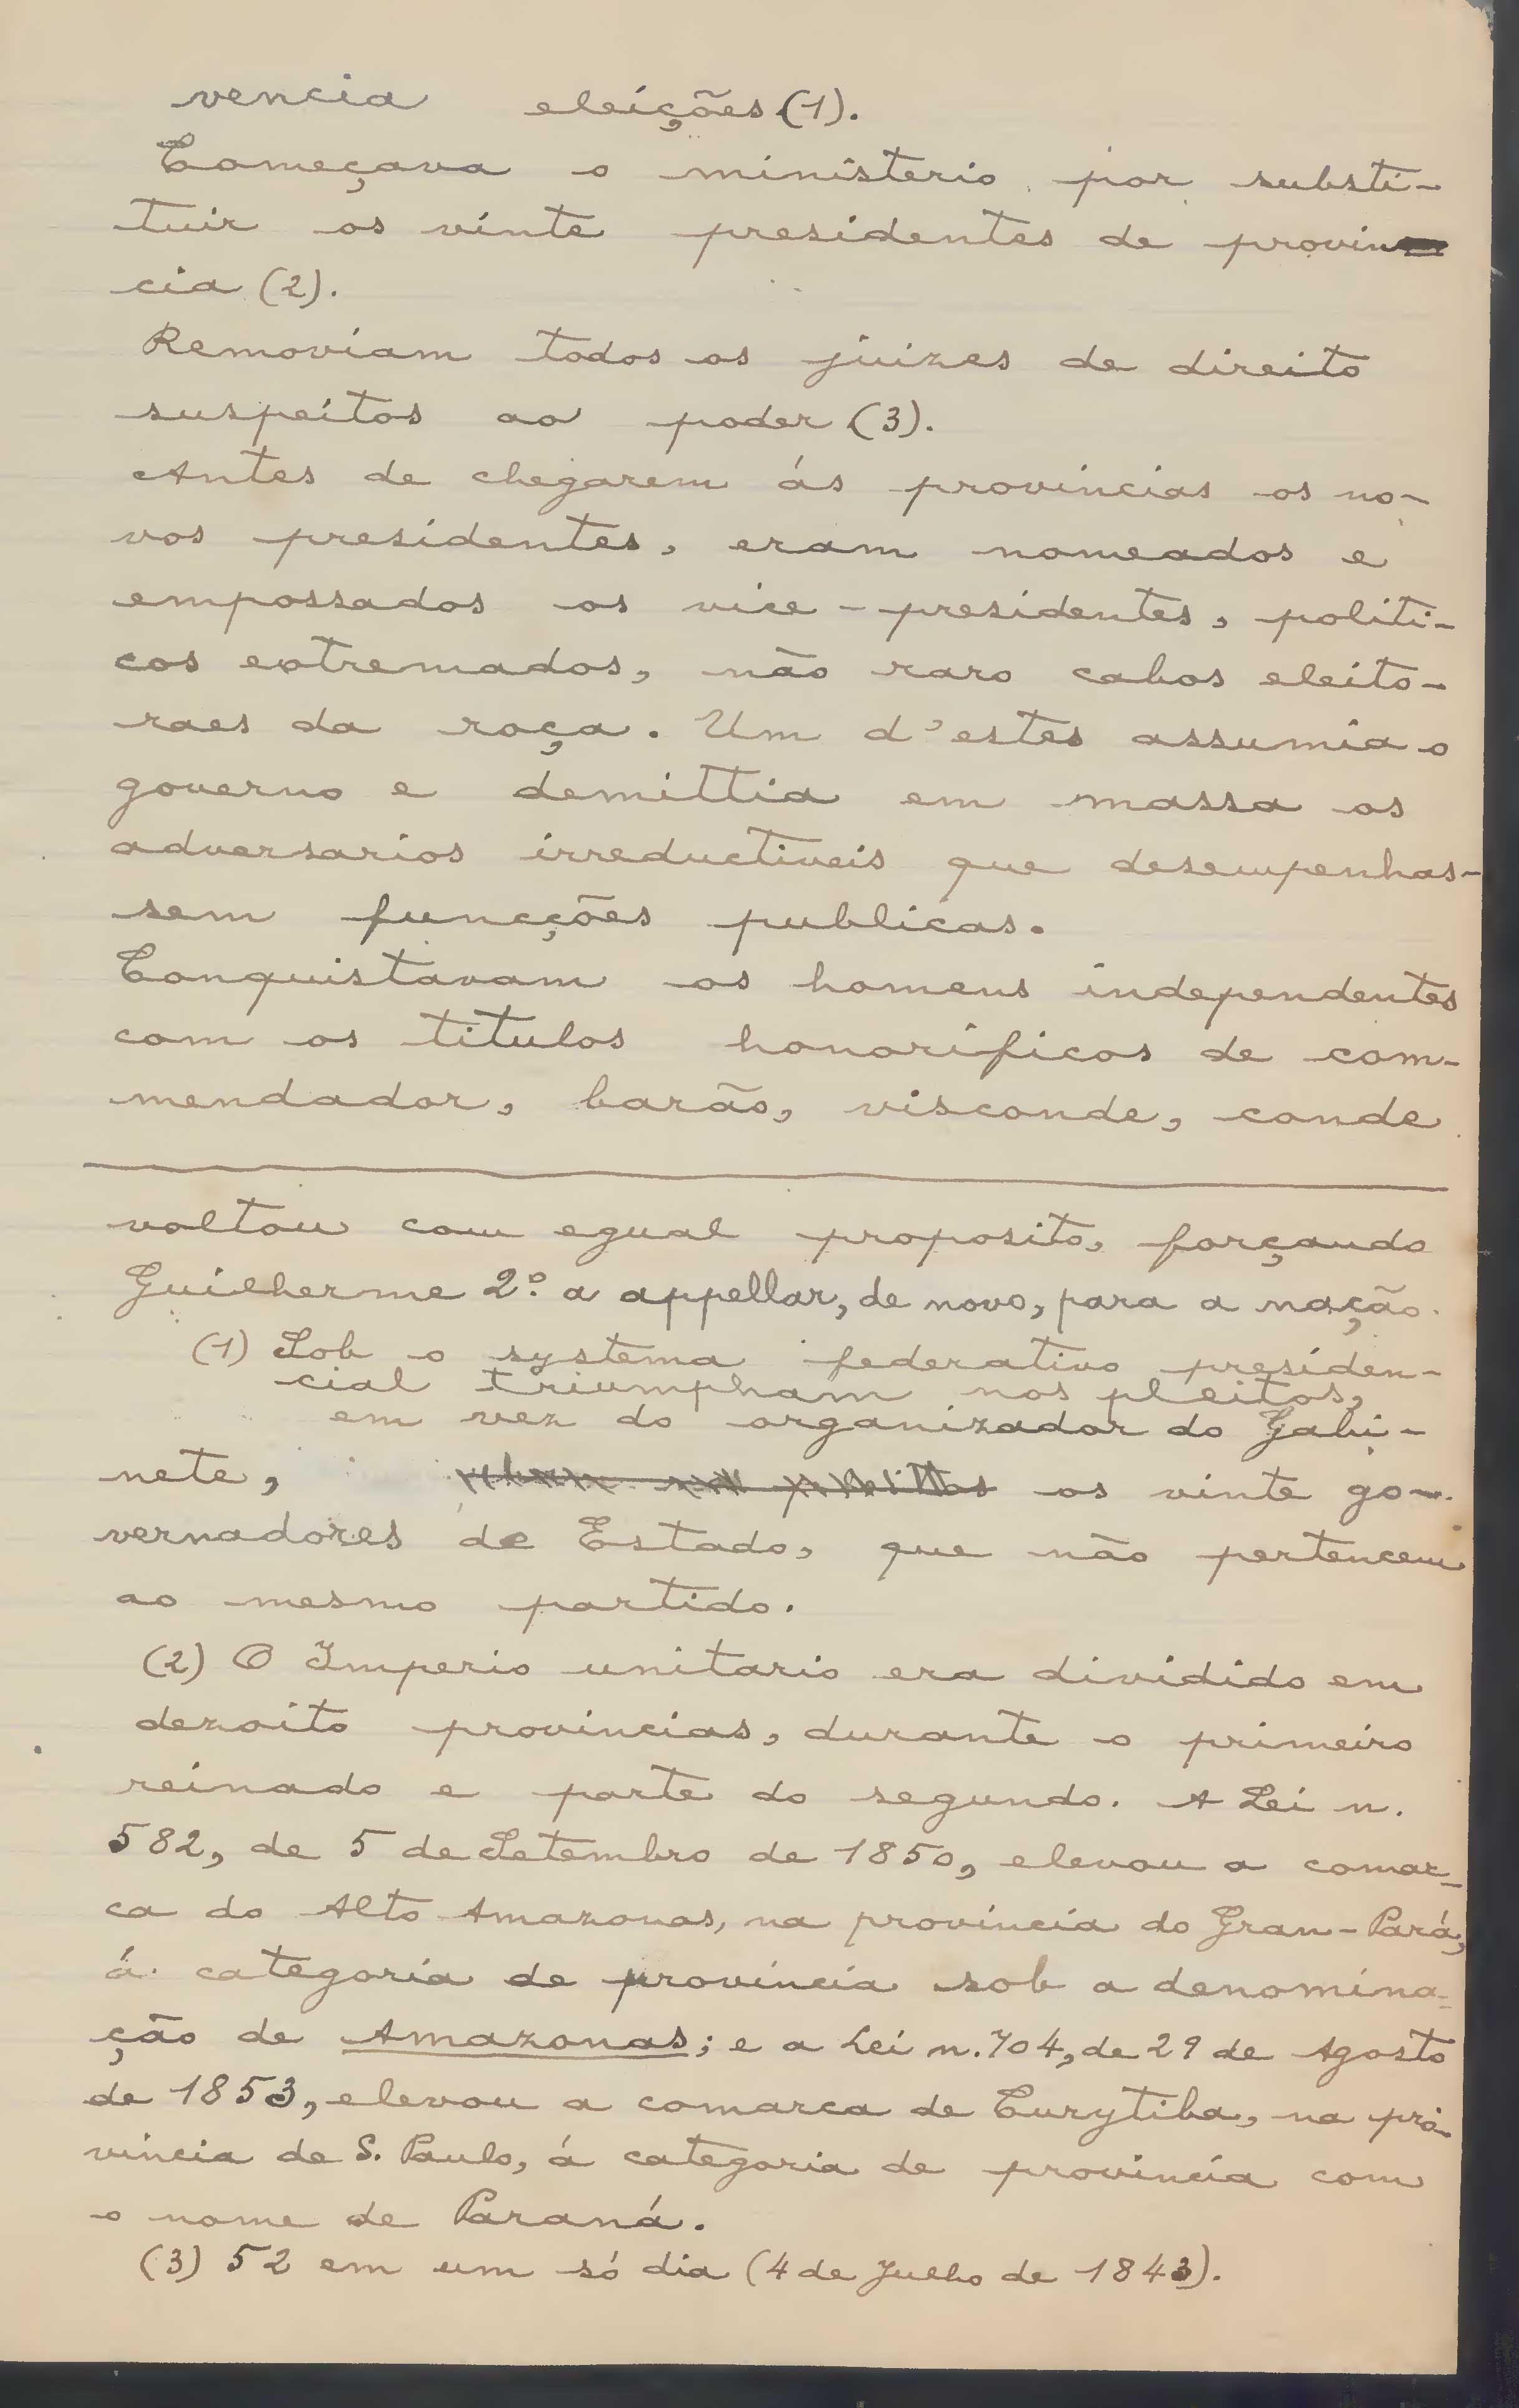 vencia eleições (1).
Começava o ministerio por substi-
tuir os vinte presidentes de provin
cia (2).
Removiam todos os juizes de direito
suspeitos ao poder (3).
Antes de chegarem ás provincias os no-
vos presidentes, eram nomeados e
empossados os vice-presidentes, politi-
cos extremados, não raro cabos eleito-
raes da roça. Um d'estes assumia o
governo e demittia em massa os
adversarios irreductiveis que desempenhas-
sem funcções publicas.
Conquistavam os homens independentes
com os titulos honorificos de com-
mendador, barão, visconde, conde
voltou com egual proposito, forçando
Guilherme 2º. a appellar, de novo, para a nação.
(1) Sob o systema federativo presiden-
cial triumpham nos pleitos,
em vez do organizador do Gabi-
nete, os vinte go-
vernadores de Estado, que não pertencem
ao mesmo partido.
(2) O Imperio unitario era dividido em
dezoito provincias, durante o primeiro
reinado e parte do segundo. A Lei n.
582, de 5 de Setembro de 1850, elevou a comar-
ca do Alto Amazonas, na provincia do Gran-Pará,
á categoria de provincia sob a denomina-
ção de Amazonas; e a Lei n. 704, de 29 de Agosto
de 1853, elevou a comarca de Curytiba, na pro-
vincia de S. Paulo, á categoria de provincia com
o nome de Paraná.
(3) 52 em um só dia (4 de Julho de 1843).